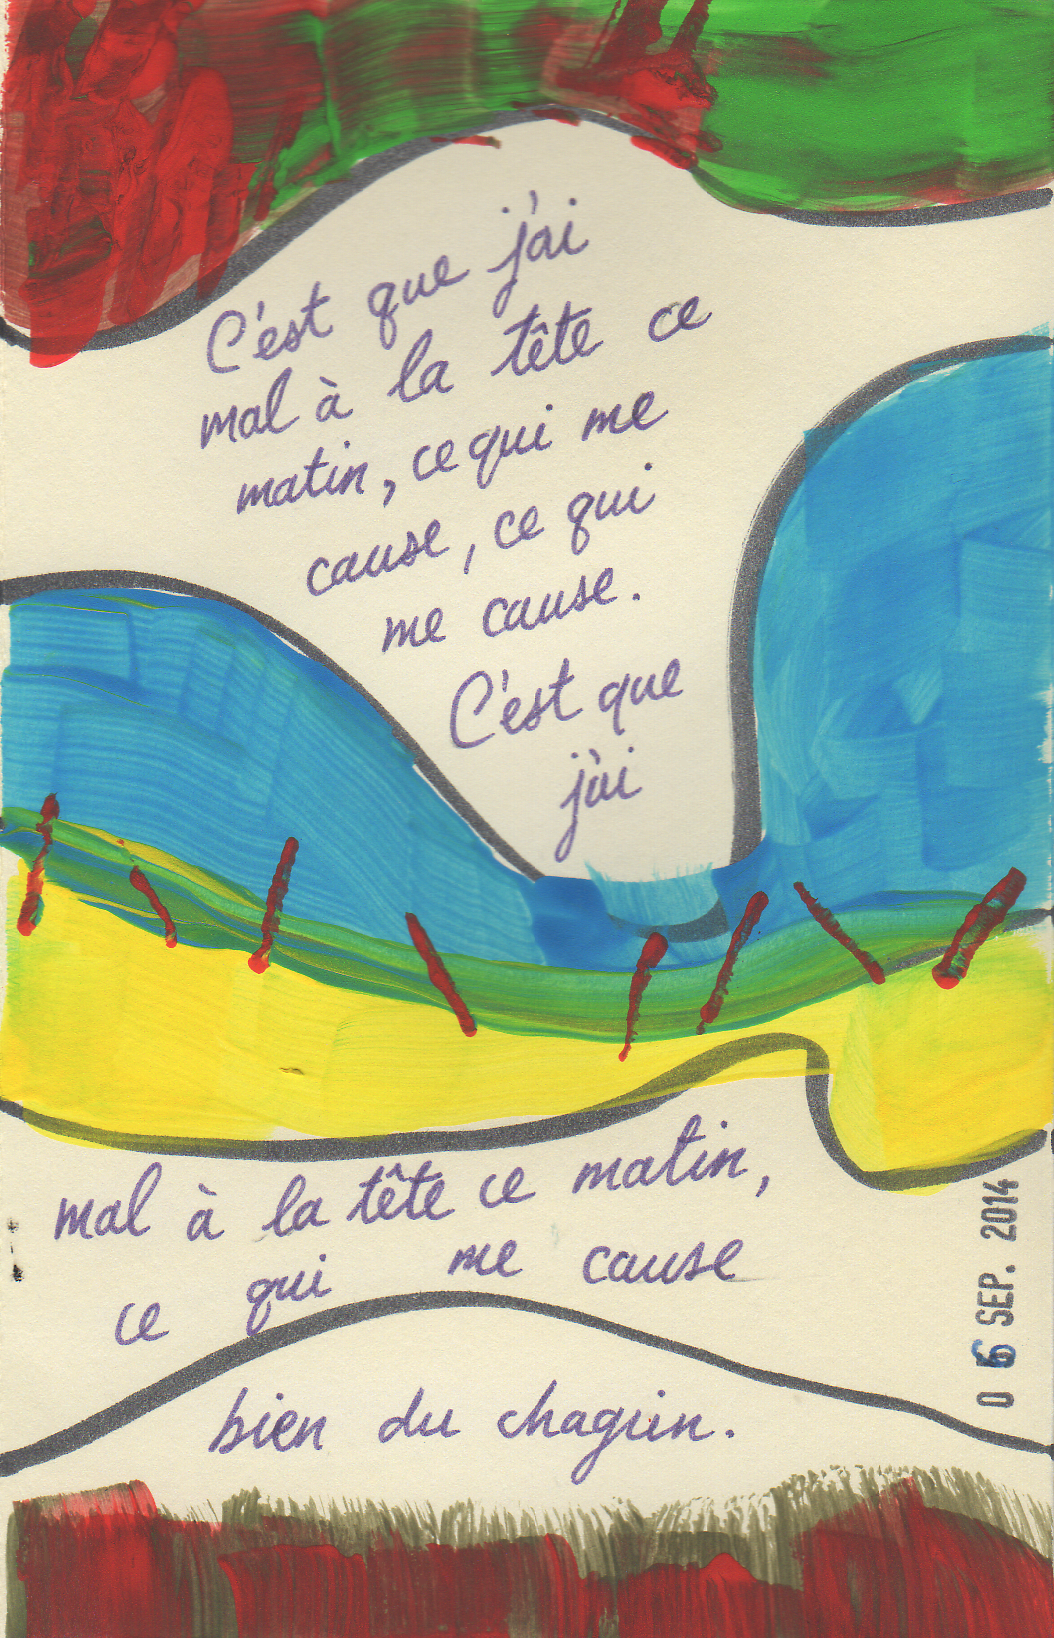 C'est que j'ai
mal à la tête ce
matin, ce qui me
cause, ce qui
me cause.
C'est que
j'ai
mal à la tête ce matin,
ce qui me cause
bien du chagrin.
06 SEP. 2014